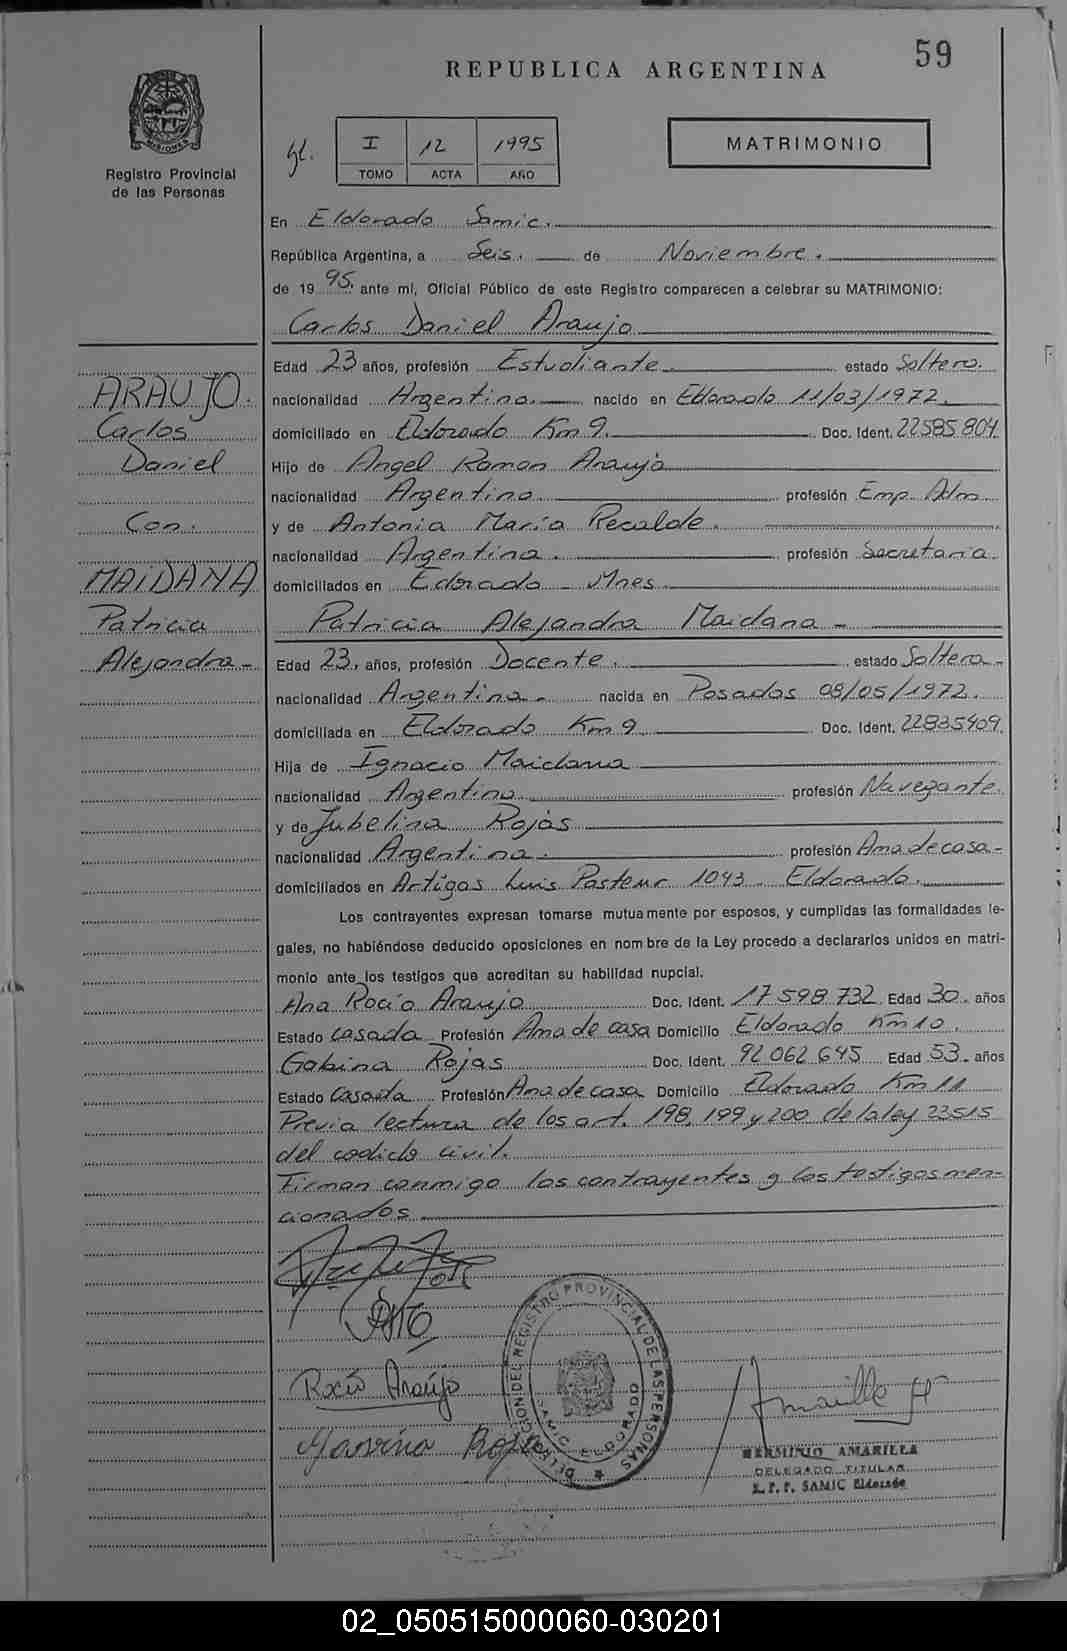 59
REPUBLICA ARGENTINA
MISIONES
Registro Provincial
de las Personas
I 12 1995
TOMO ACTA AÑO
MATRIMONIO
En Eldorado Samic.
República Argentina, a Seis. de Noviembre.
de 19 95. ante mí, Oficial Público de este Registro comparecen a celebrar su MATRIMONIO:
Carlos Daniel Araujo
Edad 23 años, profesión Estudiante estado Soltero.
nacionalidad Argentina. nacido en Eldorado 11/03/1972.
domiciliado en Eldorado Km 9. Doc. Ident. 22585804
Hijo de Angel Ramon Araujo
nacionalidad Argentina profesión Emp. Adm
y de Antonia María Recalde.
nacionalidad Argentina. profesión Secretaria.
domiciliados en Eldorado - Mnes
ARAUJO.
Carlos
Daniel
Con.
MAIDANA
Patricia
Alejandra-
Patricia Alejandra Maidana -
Edad 23. años, profesión Docente. estado Soltera-
nacionalidad Argentina- nacida en Posadas 08/05/1972.
domiciliada en Eldorado Km 9 Doc. Ident. 22835409
Hija de Ignacio Maidana
nacionalidad Argentina profesión Navegante.
y de Jubelina Rojas
nacionalidad Argentina. profesión Ama de casa-
domiciliados en Artigas Luis Pasteur 1043. Eldorado.
Los contrayentes expresan tomarse mutuamente por esposos, y cumplidas las formalidades le-
gales, no habiéndose deducido oposiciones en nombre de la Ley procedo a declararlos unidos en matri-
monio ante los testigos que acreditan su habilidad nupcial.
Ana Rocío Araujo Doc. Ident. 17598732 Edad 30. años
Estado casada Profesión Ama de casa Domicilio Eldorado Km 10.
Gabina Rojas Doc. Ident. 92062645 Edad 53. años
Estado casada Profesión Ama de casa Domicilio Eldorado Km 11
Previa lectura de los art. 198, 199 y 200 de la ley 23515
del codido civil.
Firman conmigo los contrayentes y los testigos men-
cionados
Rocío Araujo
Rojas
DELEGACION DEL REGISTRO PROVINCIAL DE LAS PERSONAS
SAMIC ELDORADO
Amarilla H
HERMINIO AMARILLA
DELEGADO TITULAR
R. P. P. SAMIC Eldorado
02_050515000060-030201